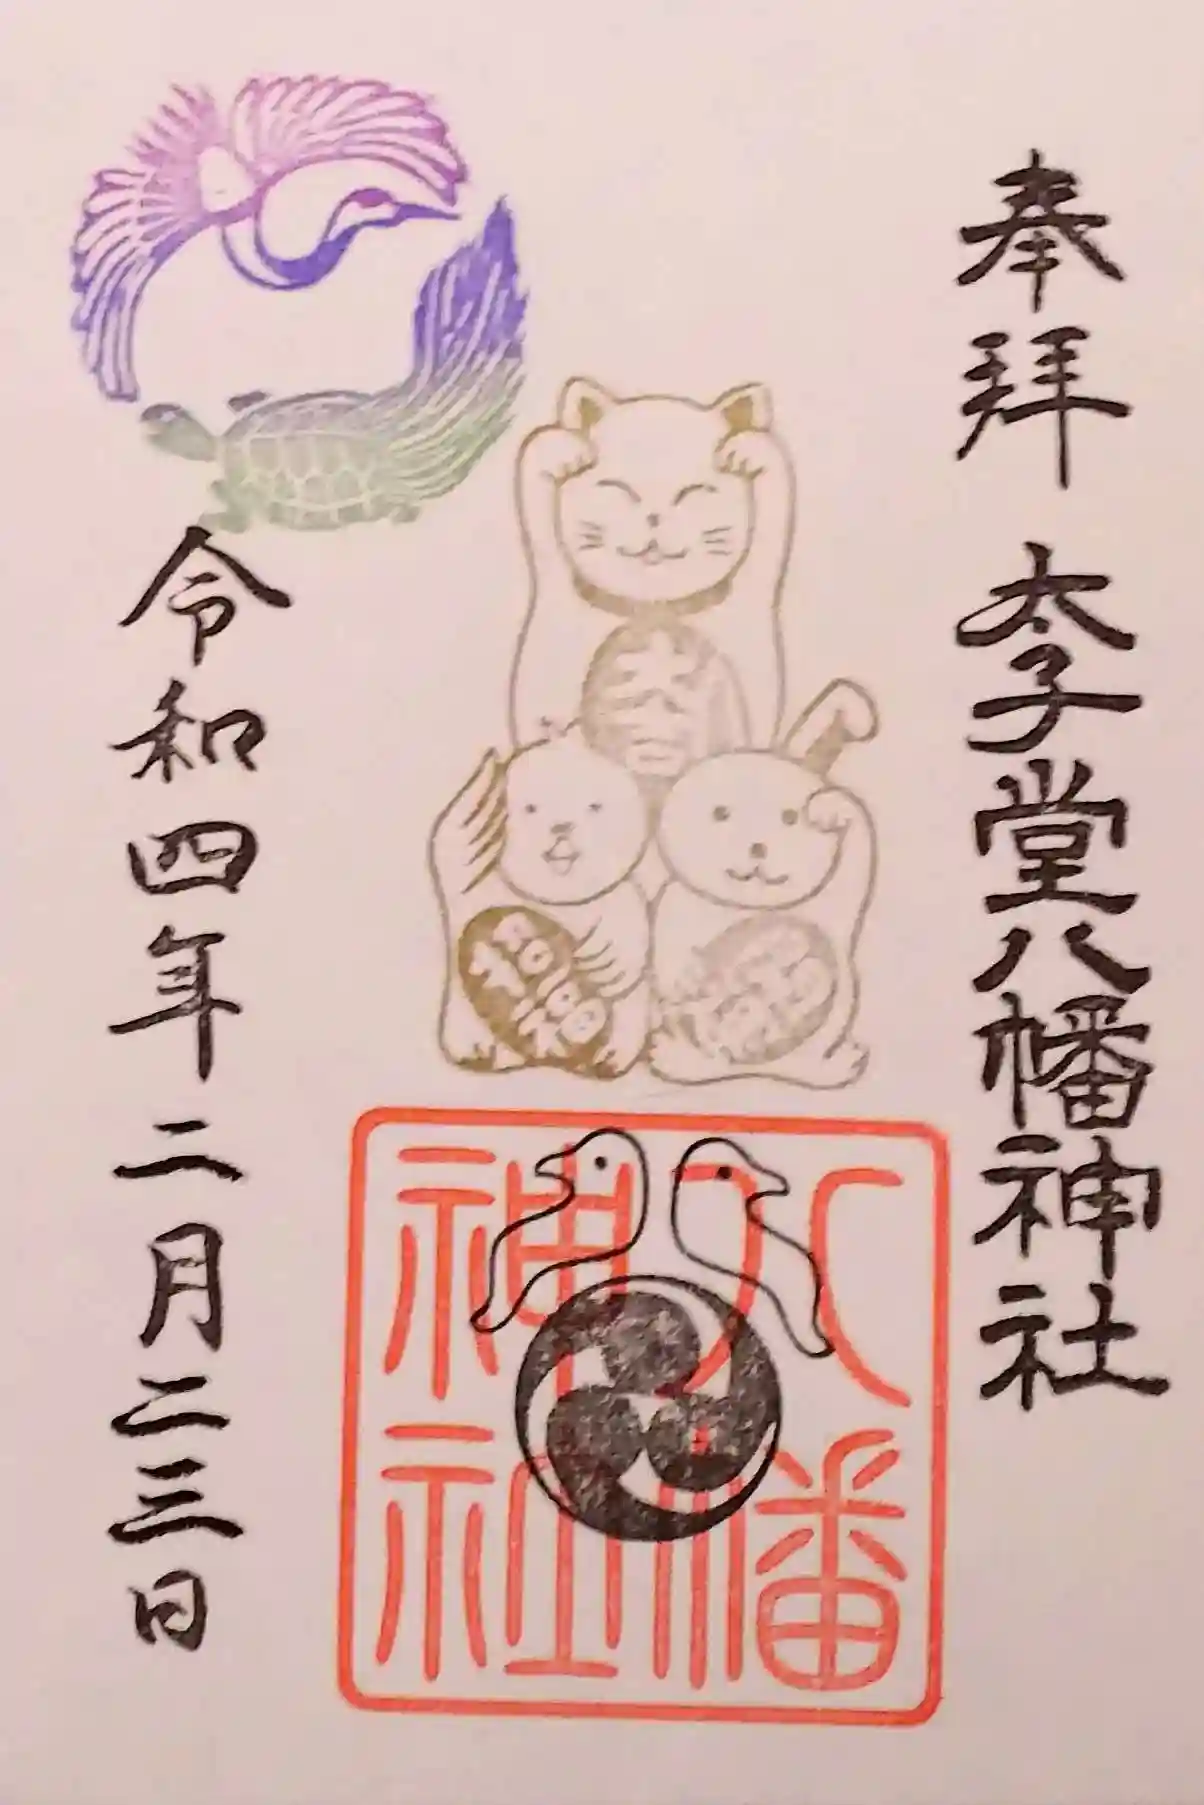 奉拝
太子堂八幡神社
招福
八幡
神社
令和四年二月二三日